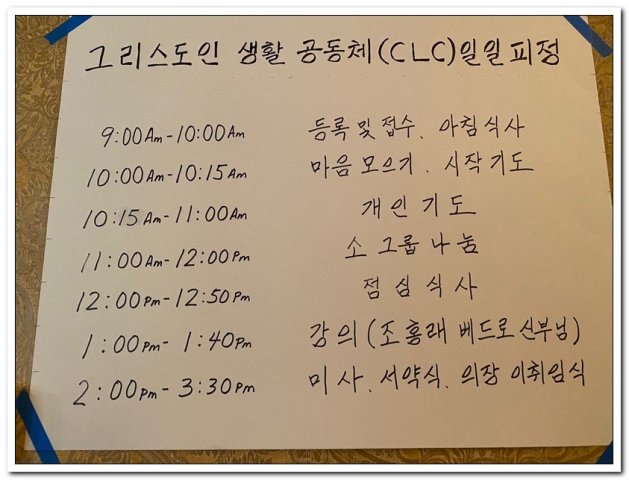 그리스도인 생활 공동체(CLC)일일피정
9:00Am-10:00Am 등록 및 접수. 아침식사
10:00Am-10:15Am 마음 모으기. 시작기도
10:15Am-11:00Am 개인기도
11:00Am-12:00Pm 소 그룹 나눔
12:00Pm-12:50Pm 점심식사
1:00Pm-1:40Pm 강의(조홍래 베드로신부님)
2:00Pm-3:30Pm 미사. 서약식. 의장 이취임식